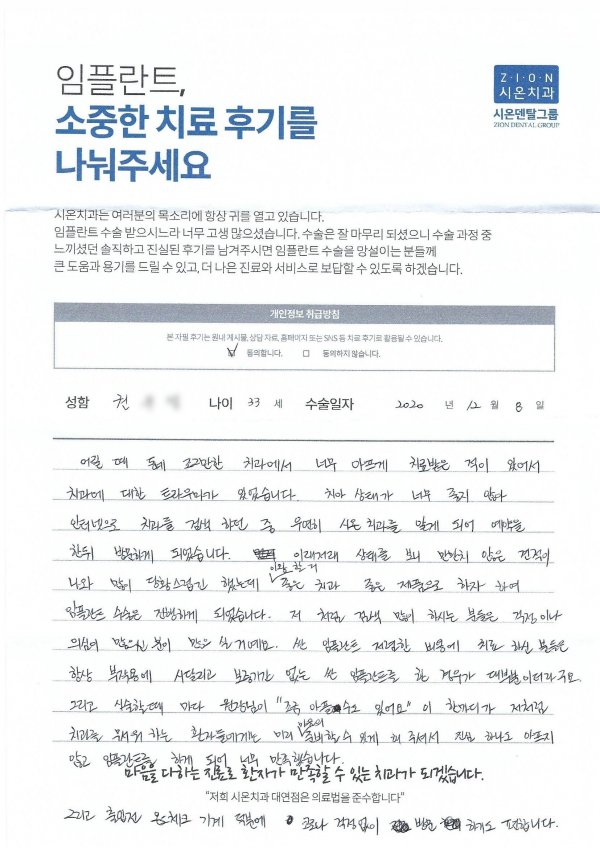 임플란트,
소중한 치료 후기를
나눠주세요
Z·I·O·N
시온치과
시온덴탈그룹
ZION DENTAL GROUP
시온치과는 여러분의 목소리에 항상 귀를 열고 있습니다.
임플란트 수술 받으시느라 너무 고생 많으셨습니다. 수술은 잘 마무리 되셨으니 수술 과정 중
느끼셨던 솔직하고 진실된 후기를 남겨주시면 임플란트 수술을 망설이는 분들께
큰 도움과 용기를 드릴 수 있고, 더 나은 진료와 서비스로 보답할 수 있도록 하겠습니다.
개인정보 취급방침
본 자필 후기는 원내 게시물, 상담 자료, 홈페이지 또는 SNS 등 치료 후기로 활용될 수 있습니다.
동의합니다. 동의하지 않습니다.
성함 권 나이 33 세 수술일자 2020 년 12 월 8 일
어릴 때 동네 조그만한 치과에서 너무 아프게 치료받은 적이 있어서
치과에 대한 트라우마가 있었습니다. 치아 상태가 너무 좋지 않아
인터넷으로 치과를 검색 하던 중 우연히 시온 치과를 알게 되어 예약을
한뒤 방문하게 되었습니다. 이래저래 상태를 보니 만만치 않은 견적이
나와 많이 당황스럽긴 했는데 이왕 할 거 좋은 치과 좋은 제품으로 하자 하여
임플란트 수술을 진행하게 되었습니다. 저 처럼 검색 많이 하시는 분들은 걱정이나
의심이 많으신 분이 많으실 거예요. 싼 임플란트 저렴한 비용에 치료 하신 분들은
항상 부작용에 시달리고 보증기간 없는 싼 임플란트를 한 경우가 대부분이더라구요.
그리고 신경치료할때 마다 원장님이 "조금 아플수도 있어요" 이 한마디가 저처럼
치과를 무서워 하는 환자들에게는 미리 마음의 준비할 수 있게 해 주셔서 진심 하나도 아프지
않고 임플란트를 하게 되어 너무 만족했습니다.
마음을 다하는 진료로 환자가 만족할 수 있는 치과가 되겠습니다.
"저희 시온치과 대연점은 의료법을 준수합니다"
그리고 출입전 온도체크 기계 덕분에 코로나 걱정없이 방문 하기도 편합니다.